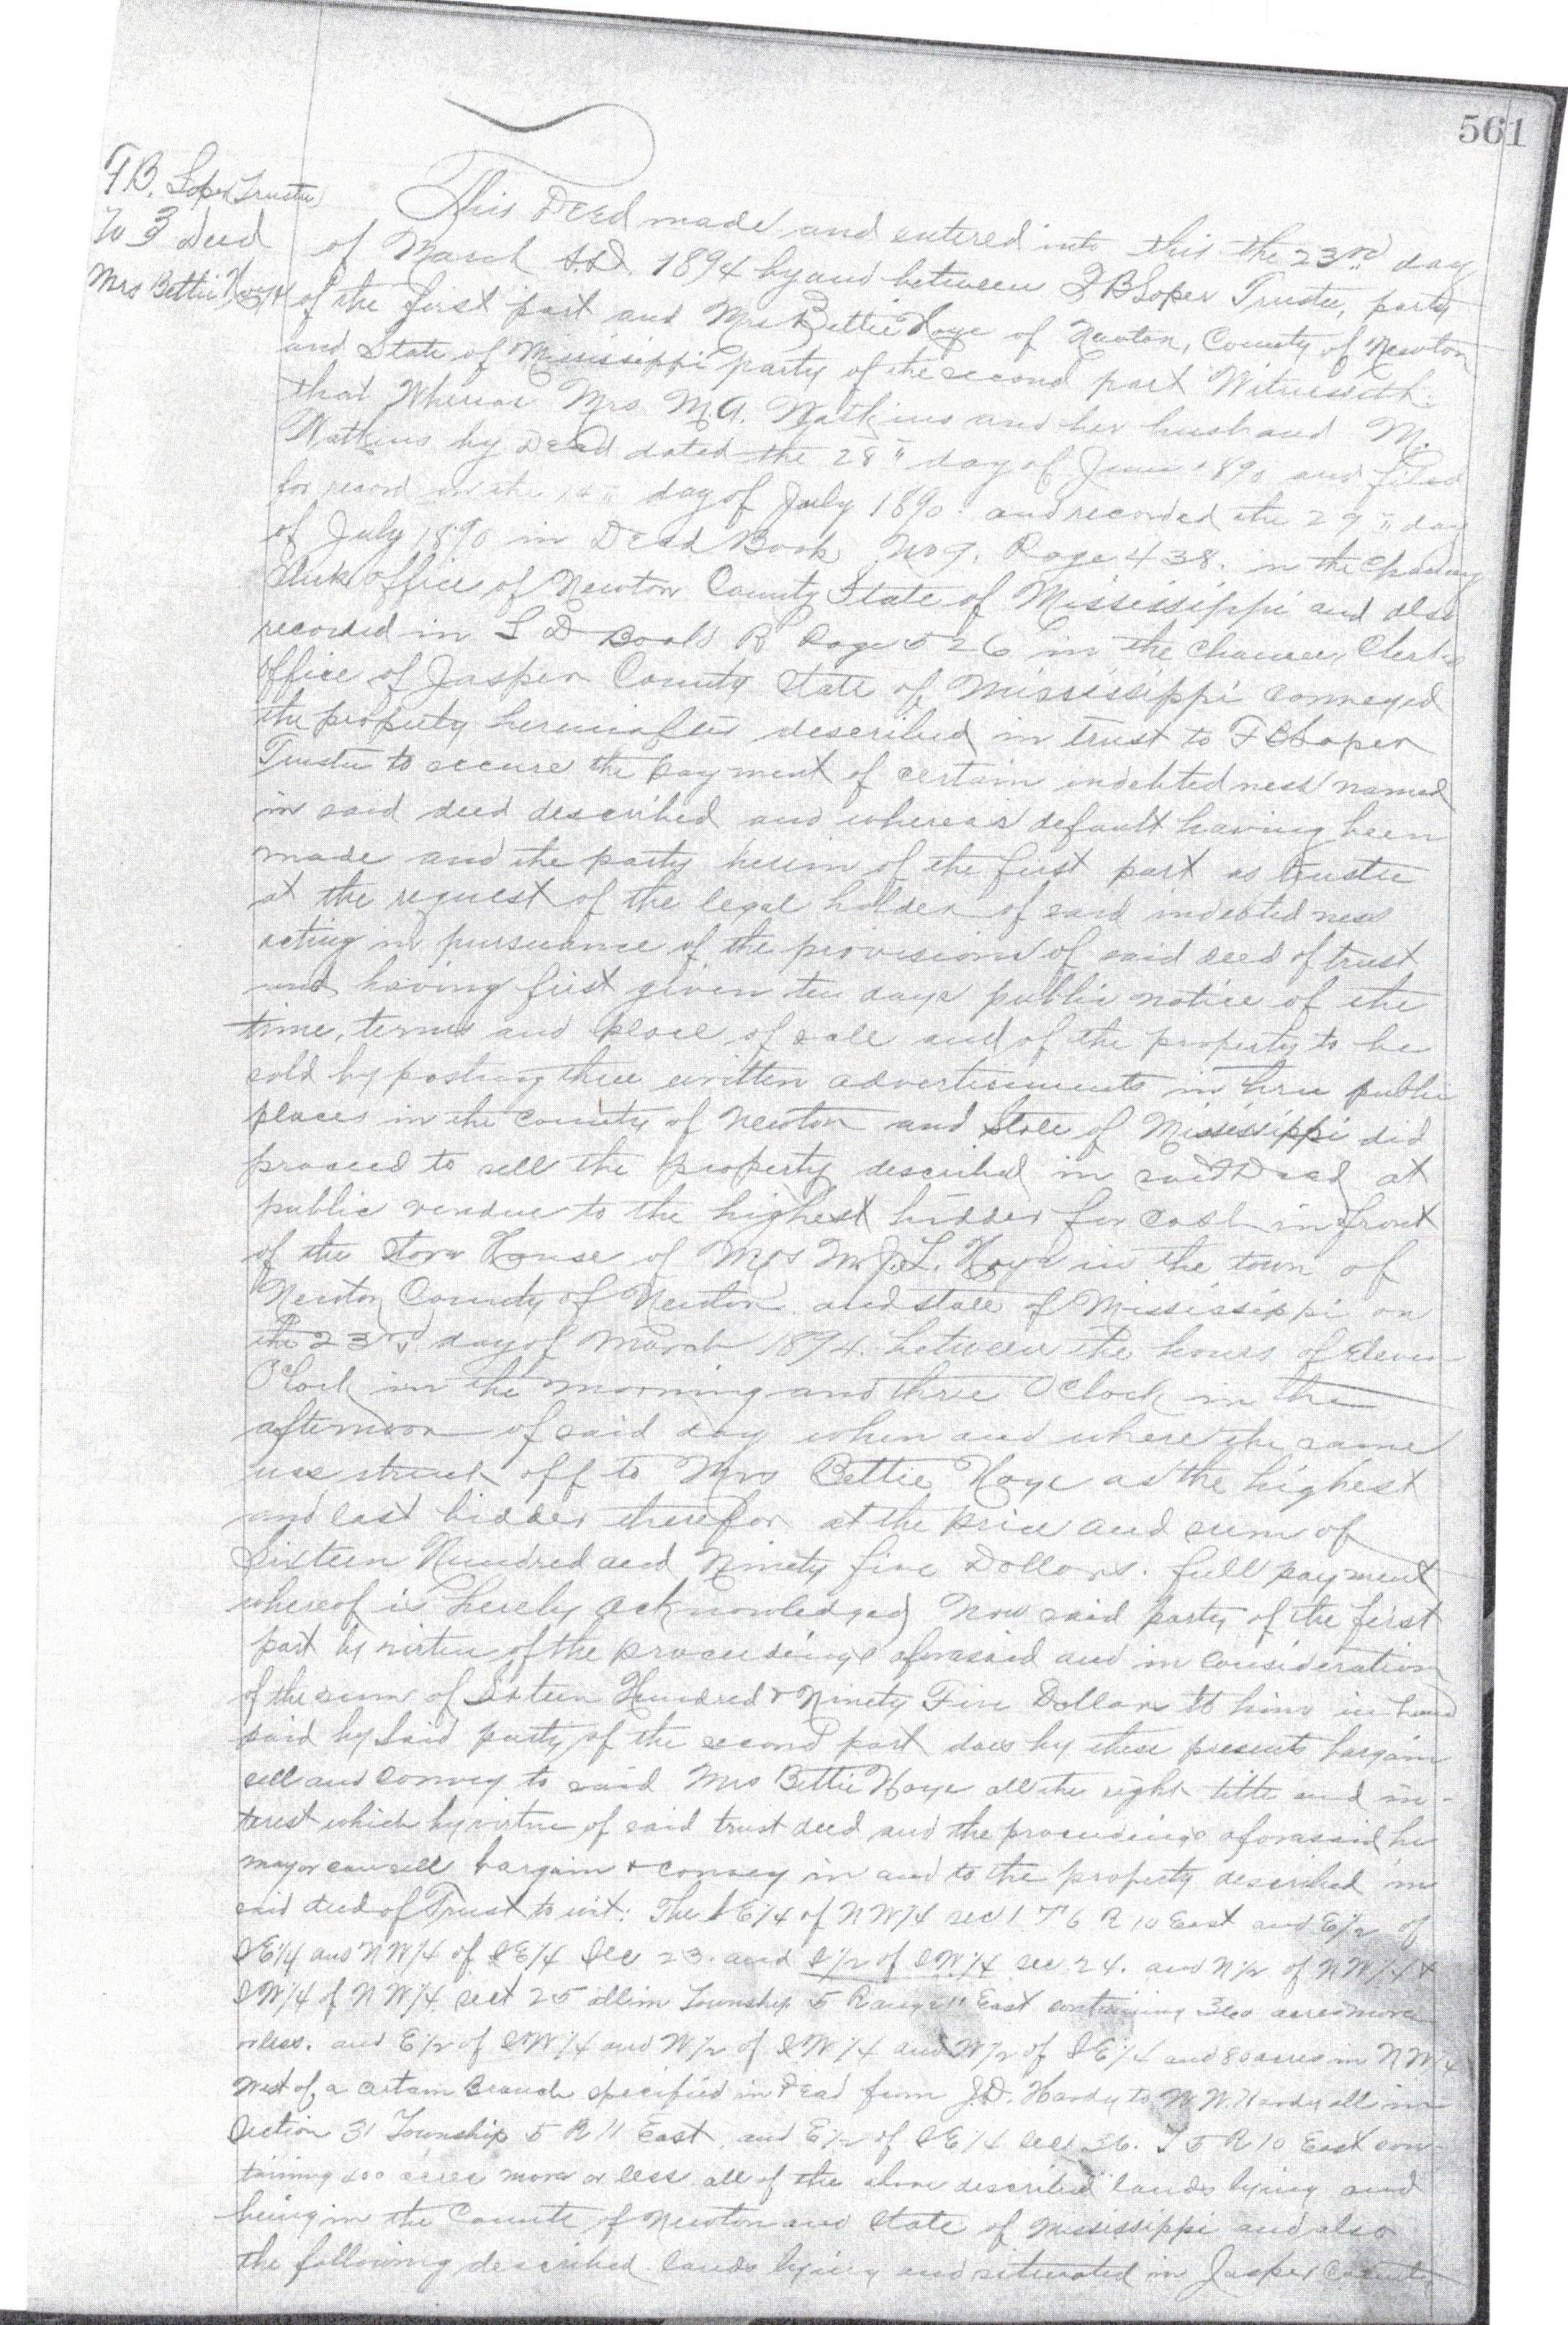 561
F.B. Loper Trustee
To } Deed
Mrs Bettie Hoye
This Deed made and entered into this the 23rd day
of March A.D. 1894 by and between F B Loper Trustee, party
of the first part and Mrs Bettie Hoye of Newton, County of Newton
and State of Mississippi party of the second part Witnesseth:
that Whereas Mrs M.A. Watkins and her husband M.
Watkins by Deed dated the 28" day of June 1890 and filed
for record on the 14" day of July 1890. and recorded the 29" day
of July 1890 in Deed Book No 9. Page 438. in the Chancery
Clerk office of Newton County State of Mississippi and also
recorded in T D Book R Page 526 in the Chancery Clerks
office of Jasper County State of Mississippi conveyed
the property hereinafter described in trust to F B Loper
Trustee to secure the payment of certain indebtedness named
in said deed described and whereas default having been
made and the party herein of the first part as trustee
at the request of the legal holder of said indebtedness
acting in pursuance of the provisions of said deed of trust
and having first given ten days public notice of the
time, terms and place of sale and of the property to be
sold by posting three written advertisements in three public
places in the county of Newton and State of Mississippi did
proceed to sell the property described in said Deed at
public vendue to the highest bidder for cash in front
of the Store House of Mrs M.J.L. Hoye in the town of
Newton County of Newton and state of Mississippi on
the 23rd day of March 1894. between the hours of Eleven
O'Clock in the morning and three O'Clock in the
afternoon of said day when and where the same
was struck off to Mrs Bettie Hoye as the highest
and last bidder therefor at the price and sum of
Sixteen Hundred and Ninety five Dollars. full payment
whereof is hereby acknowledged Now said party of the first
part by virtue of the proceedings aforesaid and in consideration
of the sum of Sixteen Hundred & Ninety Five Dollars to him in hand
paid by said party of the second part does by these presents bargain
sell and convey to said Mrs Bettie Hoye all the right title and in-
terest which by virtue of said trust deed and the proceedings aforesaid he
may or can sell bargain & convey in and to the property described in
said deed of Trust to wit: The S E 1/4 of N W 1/4 sec 1 T 6 R 10 East and E 1/2 of
S E 1/4 and N W 1/4 of S E 1/4 Sec 23. and S 1/2 of S W 1/4 sec 24. and N 1/2 of N W 1/4 &
S W 1/4 of N W 1/4 sect 25 all in Township 5 Range 11 East containing 360 acres more
or less. and E 1/2 of S W 1/4 and W 1/2 of S W 1/4 and W 1/2 of S E 1/4 and 80 acres in N W 1/4
West of a certain Branch specified in Deed from J.D. Hardy to W W. Hardy all in
Section 31 Township 5 R 11 East, and E 1/2 of S E 1/4 sec 36. T 5 R 10 East con-
taining 400 acres more or less all of the above described lands lying and
being in the County of Newton and State of Mississippi and also
the following described lands lying and situated in Jasper County